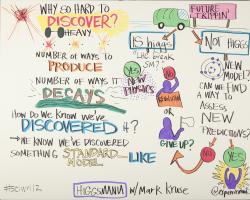 WHY SO HARD
to DISCOVER?
HEAVY
NUMBER OF WAYS TO
PRODUCE
NUMBER OF WAYS IT
DECAYS
HOW DO WE KNOW WE'VE
DISCOVERED IT?
WE KNOW WE'VE DISCOVERED
SOMETHING STANDARD MODEL LIKE
FUTURE
TRIPPIN'
IS higgs
SM?
YES
NEW
PHYSICS
GIVE UP?
NOT HIGGS
NEW
MODEL?
CAN WE FIND
A WAY TO
ASSESS
NEW
PREDICTIONS
#scio12
HIGGSMANIA w/ Mark Kruse